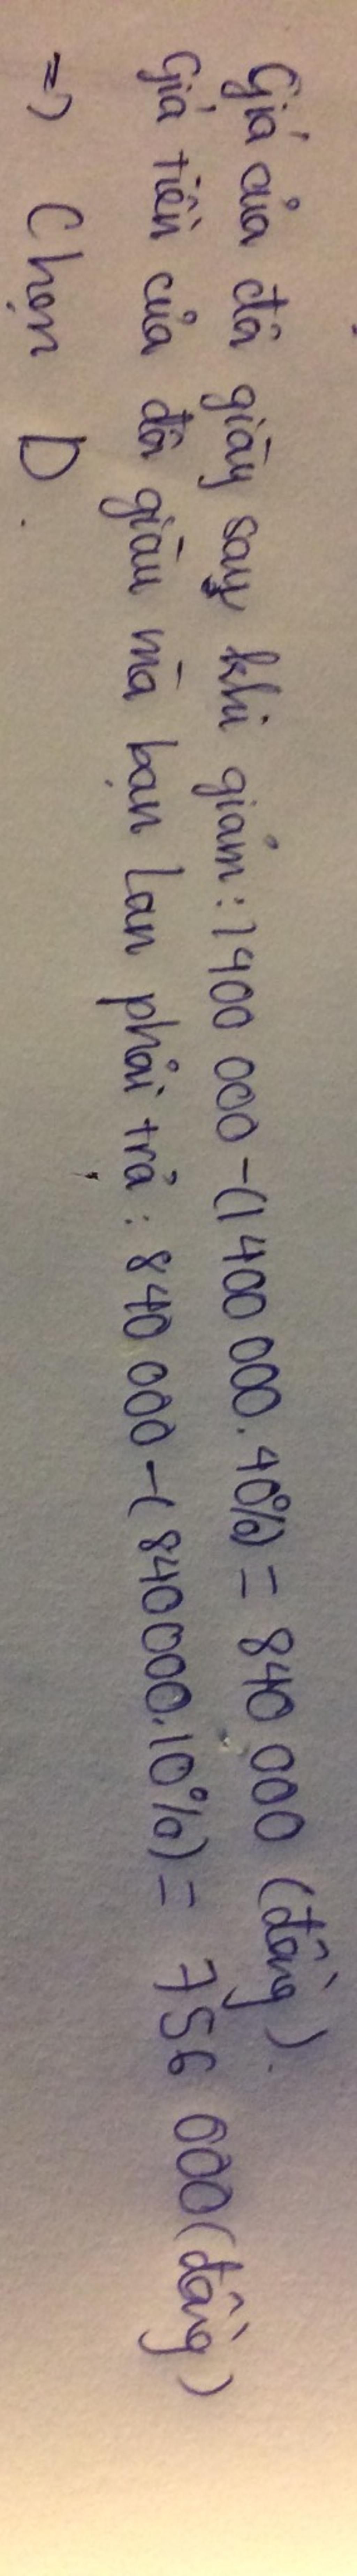 Giá của đôi giày sau khi giảm: 1 400 000 - (1 400 000. 40%) = 840 000 (đồng).
Giá tiền của đôi giày mà bạn Lan phải trả: 840 000 - (840 000. 10%) = 756 000 (đồng)
=> Chọn D.